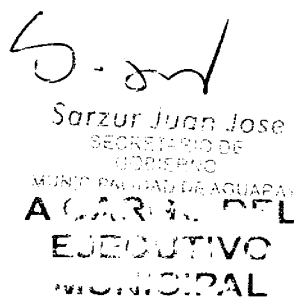 Sarzur Juan Jose
SECRETARIO DE
GOBIERNO
MUNICIPALIDAD DE AGUARAY
A CARGO DEL
EJECUTIVO
MUNICIPAL